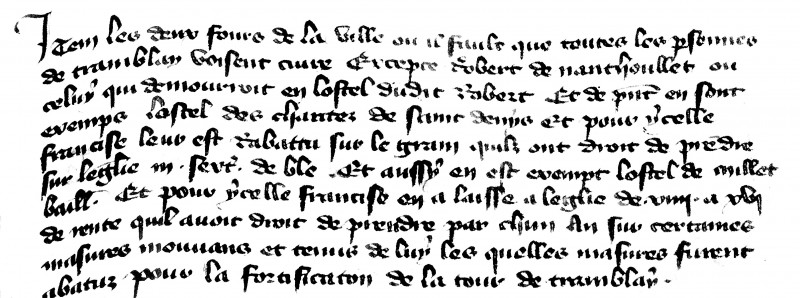 Item les deux fours de la ville ou il fault que toutes les psonnes
de tramblay voisent cuire Excepte Robert de nanthoullet ou
celuy qui demourroit en lostel dudit Robert Et de pnt en sont
exemps lostel des chantez de saint denys Et pour ycelle
francise leur est Rabattu sur le grain quilz ont droit de prendre
sur leglie m. sext. de ble. Et aussy en est exempt lostel de
baill. Et pour ycelle francise en a laisse a leglie de viii. a xvi
de rente quil avoit droit de prendre par chun An sur certaines
masures mouvans et tenus de luy les quelles masures furent
abatuz pour la fortificaton de la tour de tramblay.